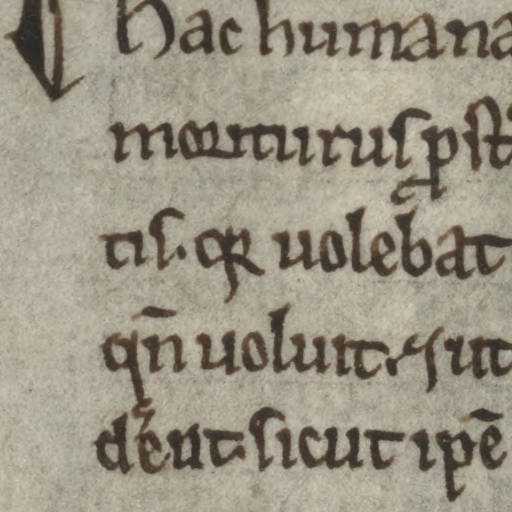 hac humana
moriturus p st
tis. qꝛ uolebat
qn̄ uoluit. ⁊ ut
dent. sicut ipē